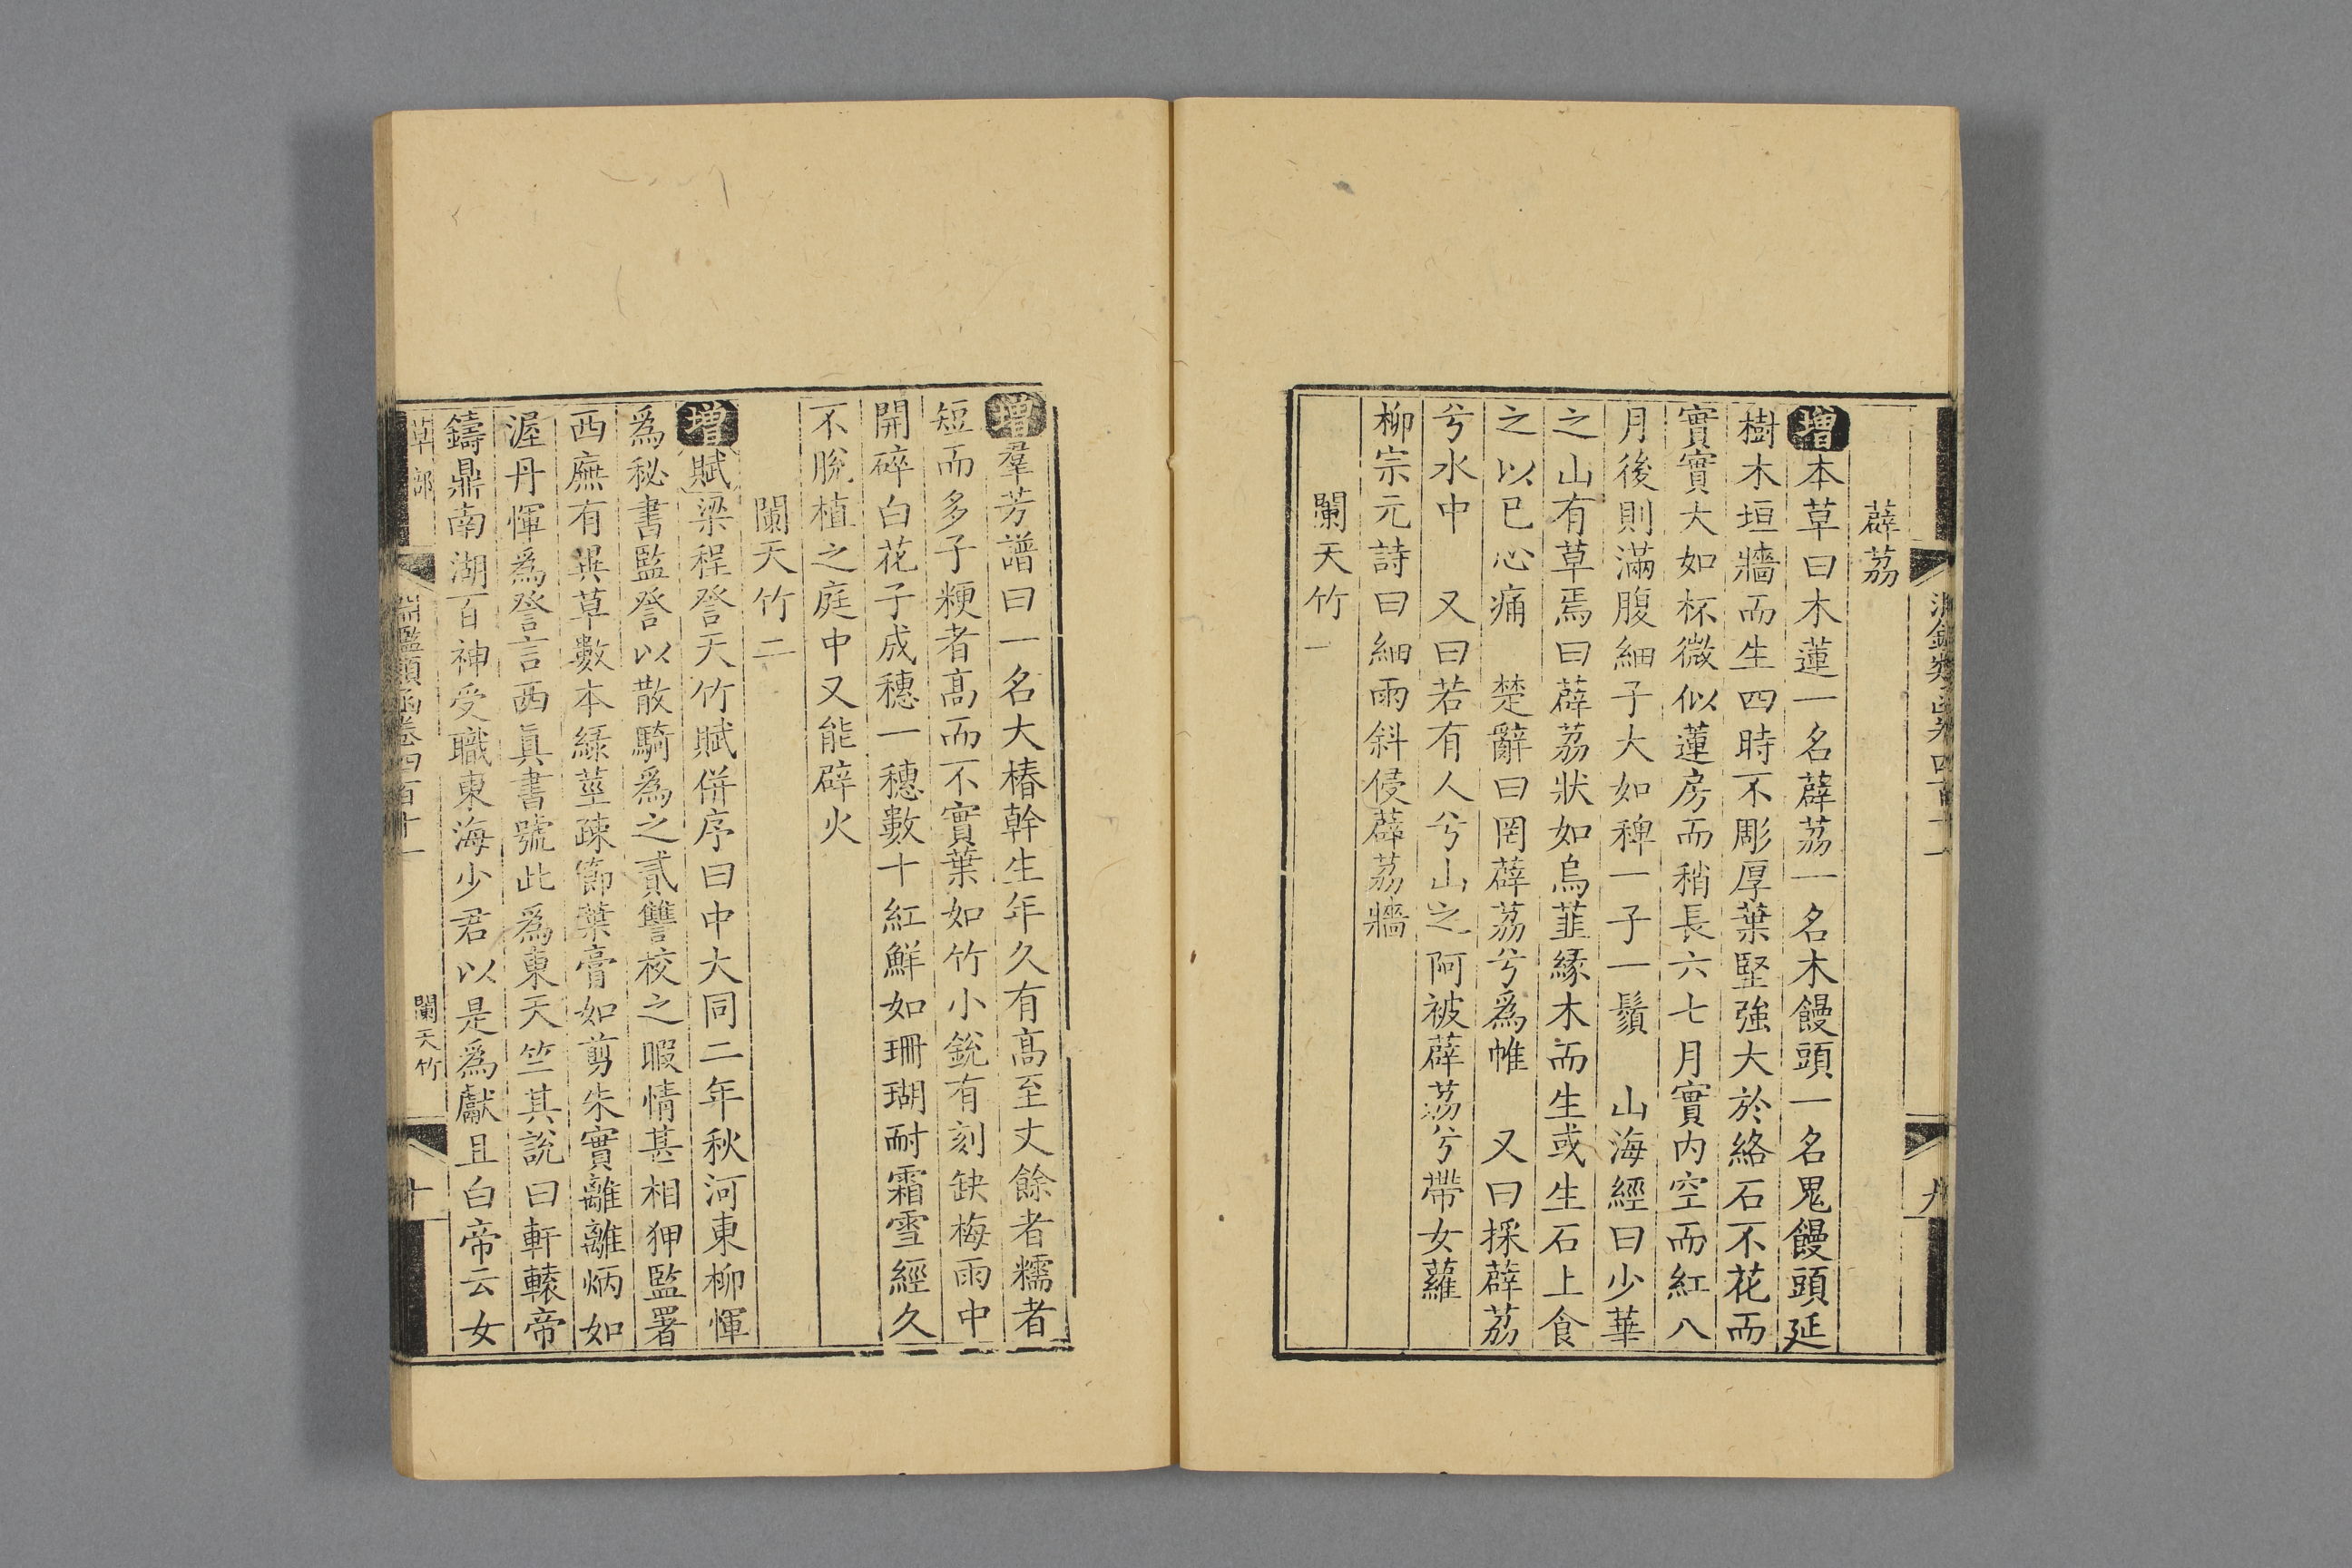 薜荔
增本草曰木蓮一名薜荔一名木饅頭一名鬼饅頭延
樹木垣牆而生四時不彫厚葉堅強大於絡石不花而
實實大如杯微似蓮房而稍長六七月實內空而紅八
月後則滿腹細子大如稗一子一鬚 山海經曰少華
之山有草焉曰薜荔狀如烏韮緣木而生或生石上食
之以已心痛 楚辭曰罔薜荔兮爲帷 又曰採薜荔
兮水中 又曰若有人兮山之阿被薜荔兮帶女蘿
柳宗元詩曰細雨斜侵薜荔牆
闌天竹一
增羣芳譜曰一名大椿幹生年久有高至丈餘者糯者
短而多子粳者高而不實葉如竹小銳有刻缺梅雨中
開碎白花子成穗一穗數十紅鮮如珊瑚耐霜雪經久
不脫植之庭中又能辟火
闌天竹二
增賦梁程詧天竹賦併序曰中大同二年秋河東柳惲
爲秘書監詧以散騎爲之貳讐校之暇情甚相狎監署
西廡有異草數本綠莖疎節葉膏如剪朱實離離炳如
渥丹惲爲詧言西真書號此爲東天竺其說曰軒轅帝
鑄鼎南湖百神受職東海少君以是爲獻且白帝云女
草部 淵鑑類函卷四百十一 闌天竹 十